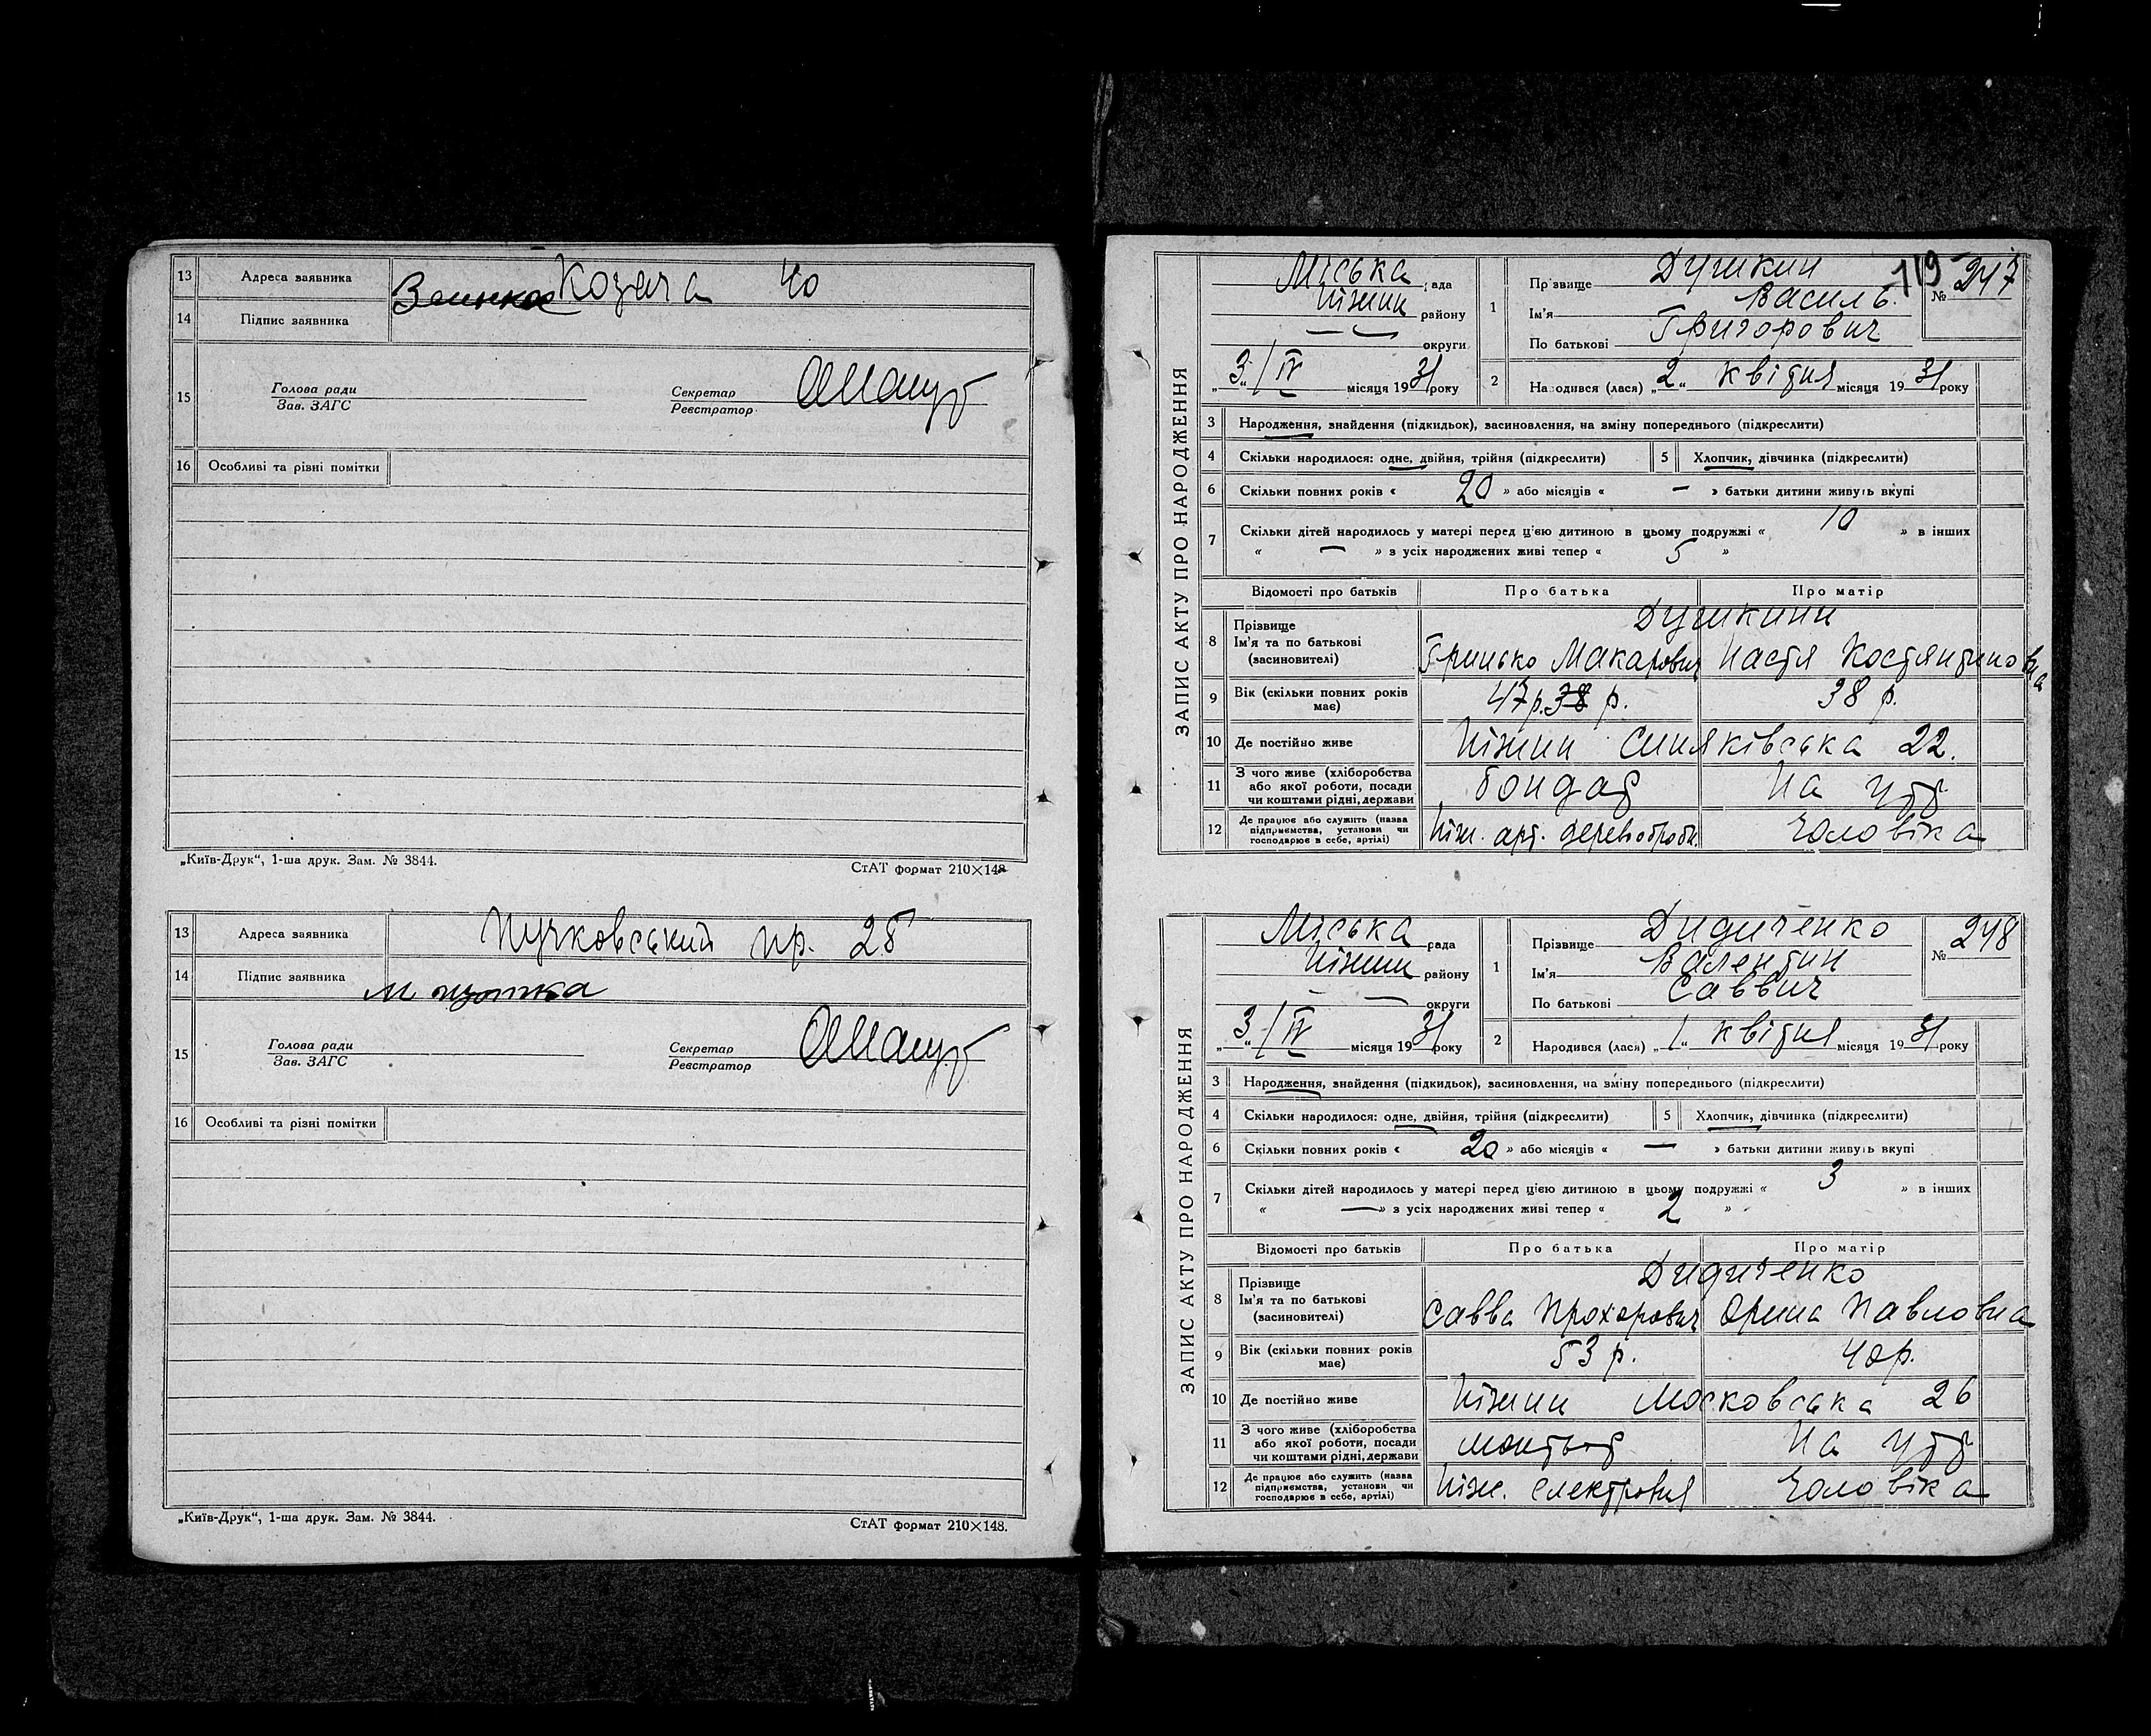 13 Адреса заявника Козача 40
14 Підпис заявника
15 Голова ради
Зав. ЗАГС
Секретар
Реєстратор
16 Особливі та різні помітки
„Київ-Друк“, 1-ша друк. Зам. № 3844. СтАТ формат 210×148
13 Адреса заявника пр. 25
14 Підпис заявника
15 Голова ради
Зав. ЗАГС
Секретар
Реєстратор
16 Особливі та різні помітки
„Київ-Друк“, 1-ша друк. Зам. № 3844. СтАТ формат 210×148.
119
ЗАПИС АКТУ ПРО НАРОДЖЕННЯ
Міська рада
Ніжин району
— — округи
„3“ / IV місяця 1931 року
1 Прізвище Душкин № 247
Ім'я Василь
По батькові Григорович
2 Народився (лася) „2“ квітня місяця 1931 року
3 Народження, знайдення (підкидьок), засиновлення, на зміну попереднього (підкреслити)
4 Скільки народилося: одне, двійня, трійня (підкреслити) 5 Хлопчик, дівчинка (підкреслити)
6 Скільки повних років « 20 » або місяців « — » батьки дитини живуть вкупі
7 Скільки дітей народилось у матері перед цією дитиною в цьому подружжі « 10 » в інших
« — » з усіх народжених живі тепер « 5 »
Відомості про батьків Про батька Про матір
8 Прізвище Душкини
Ім'я та по батькові
(засиновителі) Гринько Макарович Настя Костянтиновна
9 Вік (скільки повних років має) 47 р. 38 р. 38 р.
10 Де постійно живе Ніжин Синяківська 22.
11 З чого живе (хліборобства або якої роботи, посади чи коштами рідні, держави бондар На утр.
12 Де працює або служить (назва підприємства, установи чи господарює в себе, артілі) Ніж. арт. деревообробн. чоловіка
ЗАПИС АКТУ ПРО НАРОДЖЕННЯ
Міська рада
Ніжин району
— — округи
„3“ / IV місяця 1931 року
1 Прізвище Дидиченко № 248
Ім'я Валентин
По батькові Саввич
2 Народився (лася) „1“ квітня місяця 1931 року
3 Народження, знайдення (підкидьок), засиновлення, на зміну попереднього (підкреслити)
4 Скільки народилося: одне, двійня, трійня (підкреслити) 5 Хлопчик, дівчинка (підкреслити)
6 Скільки повних років « 20 » або місяців « — » батьки дитини живуть вкупі
7 Скільки дітей народилось у матері перед цією дитиною в цьому подружжі « 3 » в інших
« — » з усіх народжених живі тепер « 2 »
Відомості про батьків Про батька Про матір
8 Прізвище Дидиченко
Ім'я та по батькові
(засиновителі) Савва Прохорович Орина Павловна
9 Вік (скільки повних років має) 53 р. 40 р.
10 Де постійно живе Ніжин Московська 26
11 З чого живе (хліборобства або якої роботи, посади чи коштами рідні, держави монтьор На утр
12 Де працює або служить (назва підприємства, установи чи господарює в себе, артілі) Ніж. електровня чоловіка